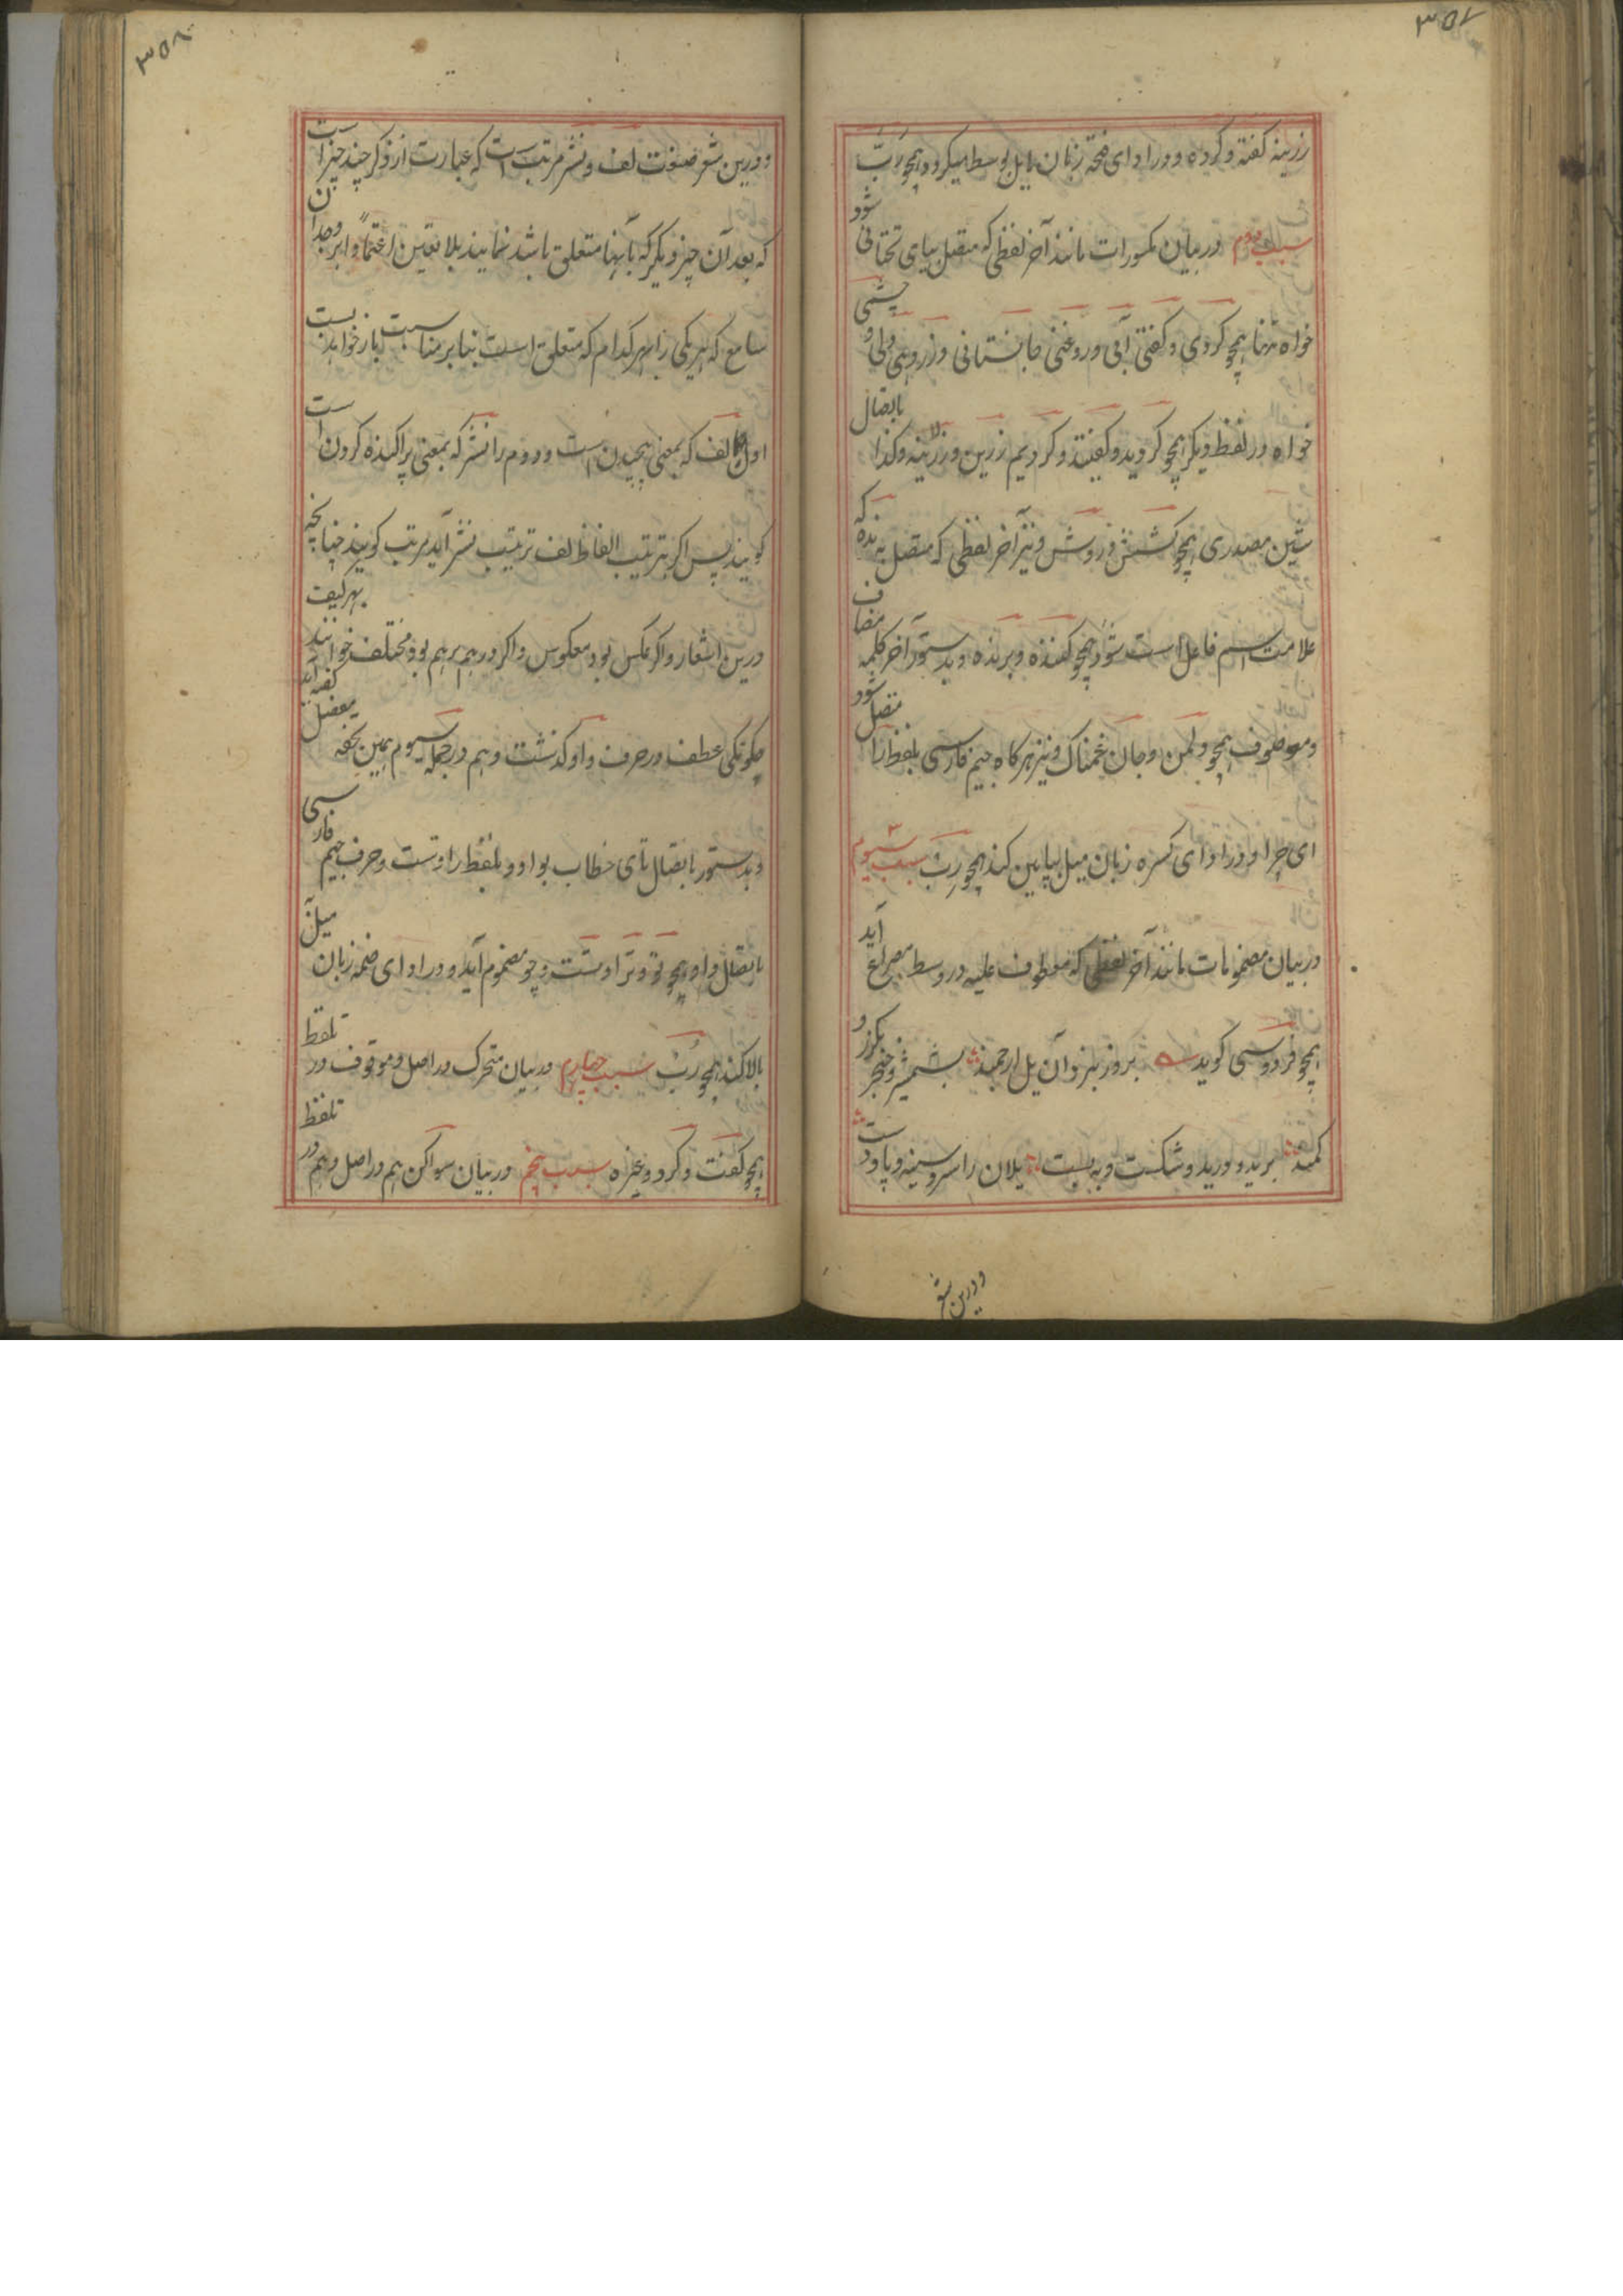 ۳۵۷
زرینه گفته و کرده و در ادای فتحه زبان مایل بوسط میگردد همچو رَبّ
سبب دوم در بیان مکسورات مانند آخر لفظی که متصل بیای تحتانی شود
خواه تنها همچو کردی و گفتی آبی و روغنی جانستانی و زر دهی ولی و چشمی
خواه در لفظ دیگر همچو کردید و گفتید و کردیم زرین و زرینه و کذا باتصال
شین مصدری همچو کشش و روش و نیز آخر لفظی که متصل به نده که
علامت اسم فاعل است شود همچو کننده و برنده و بدستور آخر کلمه مضاف
و موصوف همچو دلمن و جان غمناک و نیز هر کاه جیم فارسی بلفظ را متصل شود
ای چرا و در ادای کسره زبان میل بپایین کند همچو رِبّ سبب سیوم
در بیان مضمومات مانند آخر لفظی که معطوف علیه در وسط مصراع آید
همچو فردوسی گوید بروز نبرد آن یل ارجمند بشمشیر و خنجر بگرز و
کمند برید و درید و شکست و به بست یلان را سر و سینه و پا و دست
و درین شعر
۳۵۸
و درین شعر صنعت لف و نشر مرتب است که عبارت از ذکر چند چیز است
که بعد آن چیز دیگر که بآنها متعلق باشد نمایند بلا تعین اعتماداً بر وجدان
سامع که هر یکی را بهر کدام که متعلق است بنا بر مناسبت باز خواهد بست
اول را لف که بمعنی پیچیدن است و دوم را نشر که بمعنی پراکنده کردن است
گویند پس اگر بترتیب الفاظ لف ترتیب نشر آید مرتب گویند چنانچه
درین اشعار و اگر بعکس بود معکوس و اگر درهم برهم بود مختلف خوانند بهر کیف
چگونگی عطف در حرف واو گذشت و هم در جمله سیوم همین تحفه مفصل گفته آید
و بدستور باتصال تای خطاب بواو و بلفظ را و تست و حرف جیم فارسی
باتصال واو همچو تو و ترا و تست و چو مضموم آید و در ادای ضمه زبان میل
بالا کند همچو رُبّ سبب چهارم در بیان متحرک در اصل و موقوف در تلفظ
همچو گفت و کرد و غیره سبب پنجم در بیان سواکن هم در اصل و هم در تلفظ